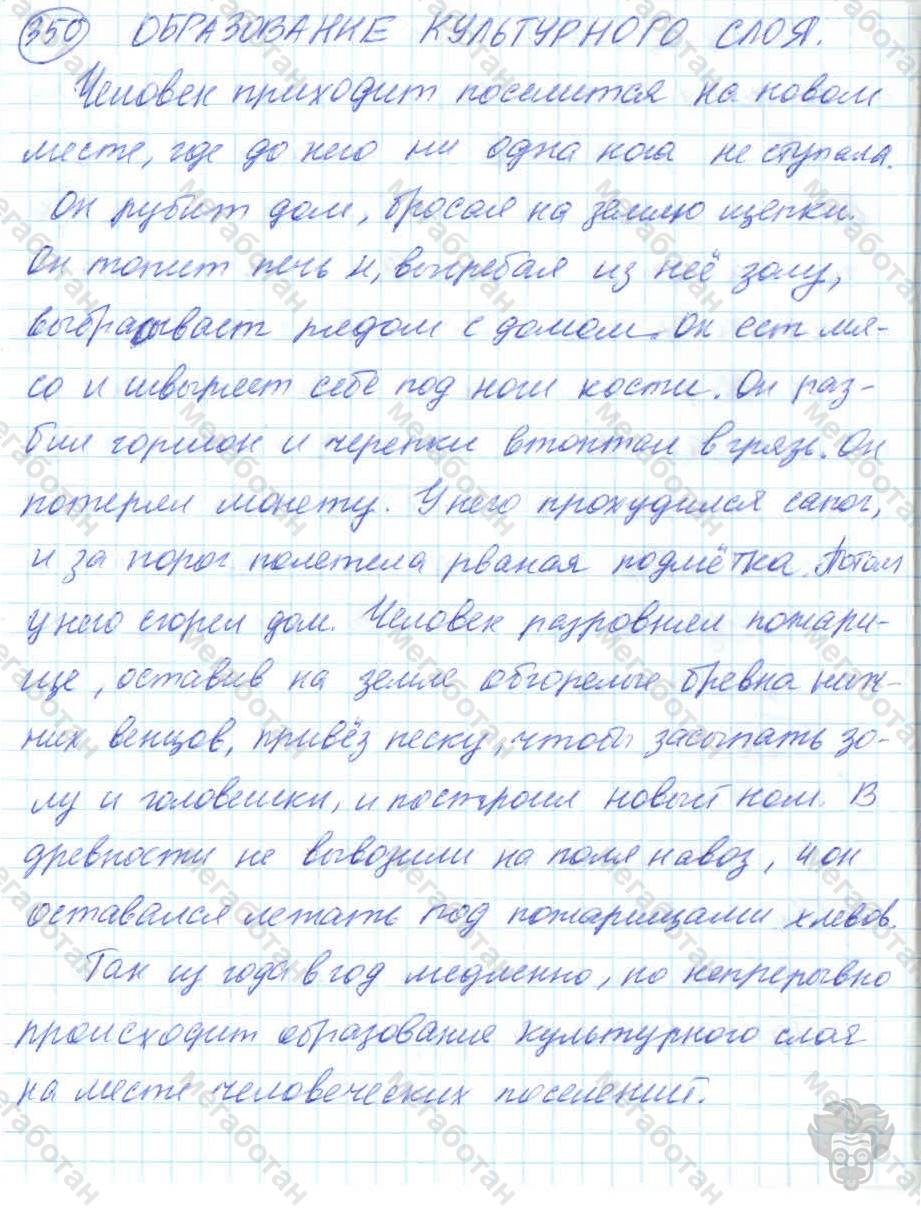 350 ОБРАЗОВАНИЕ КУЛЬТУРНОГО СЛОЯ.
Человек приходит поселится на новом
месте, где до него ни одна нога не ступала.
Он рубит дом, бросая на землю щепки.
Он топит печь и, выгребая из неё золу,
выбрасывает рядом с домом. Он ест мя-
со и швыряет себе под ноги кости. Он раз-
бил горшок и черепки втоптал в грязь. Он
потерял монету. У него прохудился сапог,
и за порог полетела рваная подмётка. Потом
у него сгорел дом. Человек разровнял пожари-
ще, оставив на земле обгорелые бревна ниж-
них венцов, привёз песку, чтобы засыпать зо-
лу и головешки, и построил новый ном. В
древности не вывозили на поля навоз, и он
оставался лежать под пожарищами хлевов.
Так из года в год медленно, но непрерывно
происходит образование культурного слоя
на месте человеческих поселений.
Мегаботан